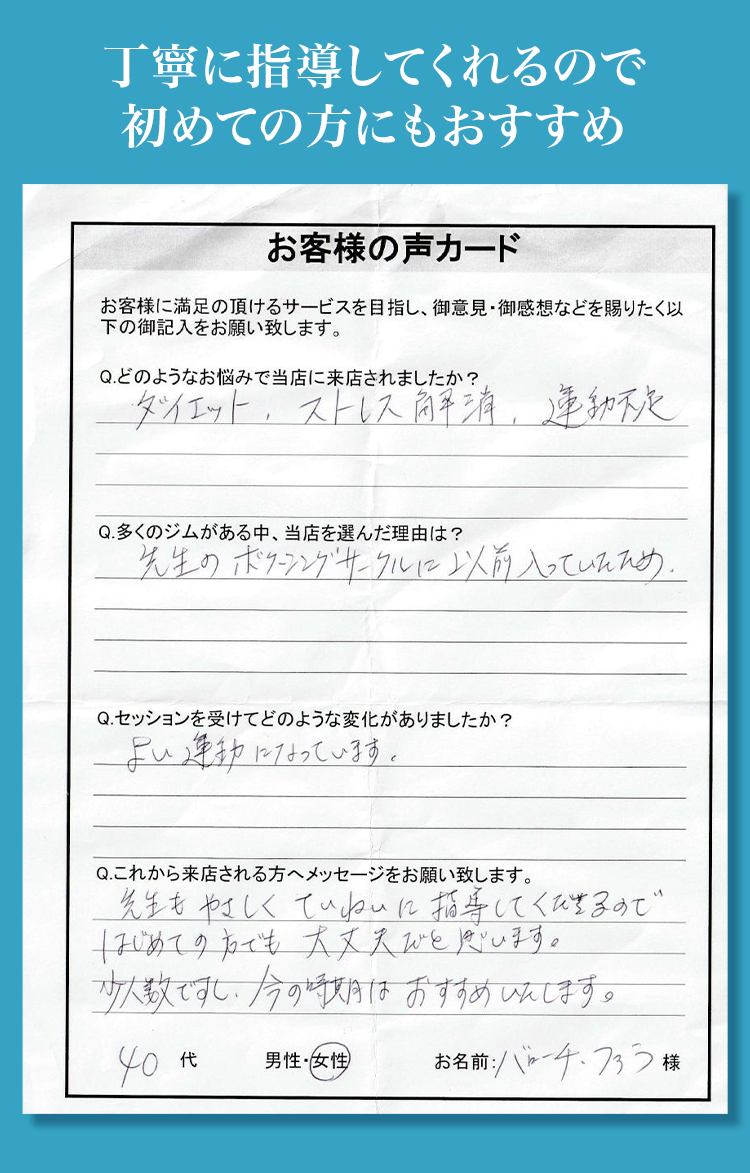 丁寧に指導してくれるので
初めての方にもおすすめ
お客様の声カード
お客様に満足の頂けるサービスを目指し、御意見・御感想などを賜りたく以
下の御記入をお願い致します。
Q.どのようなお悩みで当店に来店されましたか？
ダイエット、ストレス解消、運動不足
Q.多くのジムがある中、当店を選んだ理由は？
先生のボクーシングサークルに以前入っていたため.
Q.セッションを受けてどのような変化がありましたか？
よい運動になっています.
Q.これから来店される方へメッセージをお願い致します。
先生もやさしくていねいに指導してくださるので
はじめての方でも大丈夫だと思います。
少人数ですし、今の時期はおすすめいたします。
40 代 男性・女性 お名前:バローチ・ 様